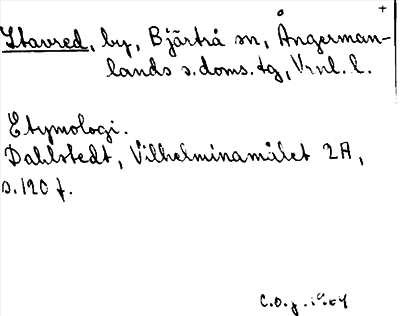 Stavred, by, Bjärtrå sn, Ångerman-
lands s. doms. tg, Vrnl. l.
Etymologi.
Dahlstedt, Vilhelminamålet 2A,
s. 120 f.
C.O.g. 1964